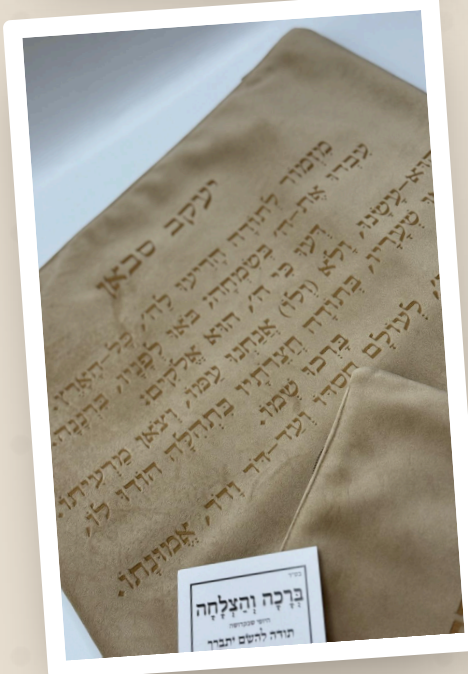 יעקב סבאן
מִזְמוֹר לְתוֹדָה הָרִיעוּ לַה', כָּל-הָאָרֶץ:
עִבְדוּ אֶת-ה' בְּשִׂמְחָה; בֹּאוּ לְפָנָיו, בִּרְנָנָה:
דְּעוּ כִּי ה', הוּא אֱלֹקִים:
הוּא-עָשָׂנוּ, וְלֹא (וְלוֹ) אֲנַחְנוּ עַמּוֹ, וְצֹאן מַרְעִיתוֹ:
שְׁעָרָיו, בְּתוֹדָה חֲצֵרֹתָיו בִּתְהִלָּה הוֹדוּ לוֹ,
בָּרְכוּ שְׁמוֹ:
לְעוֹלָם חַסְדּוֹ וְעַד-דֹּר וָדֹר, אֱמוּנָתוֹ.
בְּרָכָה וְהַצְלָחָה
תודה להשם יתברך